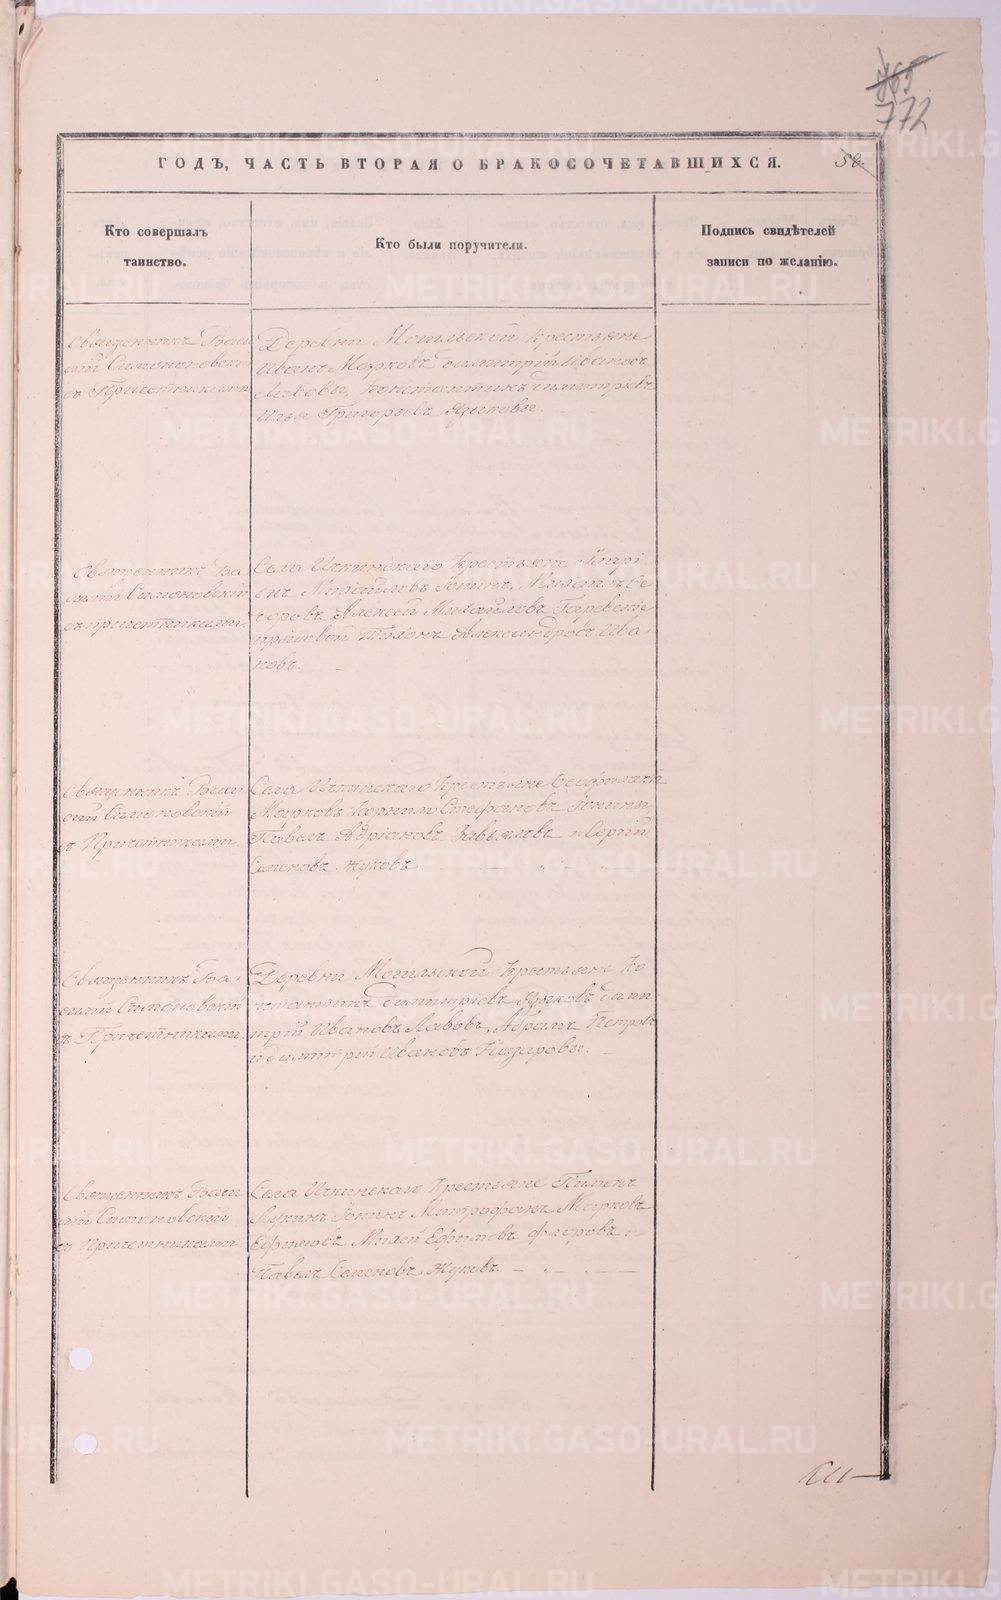 765
772
ГОДЪ, ЧАСТЬ ВТОРАЯ О БРАКОСОЧЕТАВШИХСЯ.
58.
Кто совершалъ
таинство.
Кто были поручители.
Подпись свидѣтелей
записи по желанію.
Священникъ Васи
лій Симоновскій
съ Причетниками
Деревни Могильской Крестьяне
Иванъ Марковъ Димитрій Ивановъ
Лавовы, Константинъ Димитріевъ
Илья Григорьевъ Языковы.
Священникъ Ва
силій Симоновскій
съ причетниками.
Села Ичкинскаго Крестьяне
Михайловъ Іонинъ,
Алексей Михайловъ
Александровъ Ива
новъ.
Священникъ Васи
лій Симоновскій
съ Причетниками
Села Ичкинскаго Крестьяне Феофилактъ
Марковъ Корнило Стефановъ Іонины,
Павелъ Адріановъ Завьяловъ и Сергій
Семеновъ Жуковъ
Священникъ Ва
силій Симоновскій
съ Причетниками.
Деревни Могильской Крестьяне Ко
нстантинъ Димитріевъ Языковъ Дими
трій Ивановъ Лавовъ, Абрамъ Петровъ
и Димитрій Ивановъ Назаровы.
Священникъ Васи
лій Симоновской
съ Причетниками.
Села Ичкинскаго Крестьяне Пименъ
Лукинъ Іонинъ Митрофанъ Марковъ
Ефимовъ Ефимовъ Флоровъ и
Павелъ Семеновъ Жуковъ.
METRIKI.GASO-URAL.RU